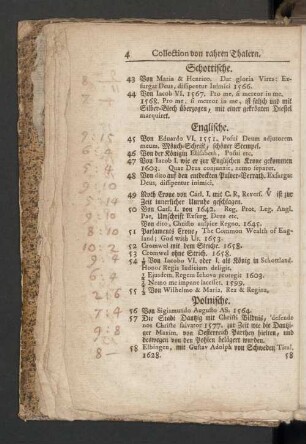 4 Collection von rahren Thalern.
Schottische.
43 Von Maria & Henrico. Dat gloria Vires: Exurgat
Deus, dissipentur Inimici 1566.
44 Von Iacob VI. 1567. Pro me, si mereor in me,
1568. Pro me, si mereor in me, ist falsch und mit
Silber-Blech überzogen, mit einer gekrönten Distel
marquiret.
Englische.
45 Von Eduardo VI. 1551. Posui Deum adjutorem
meum. Mönch-Schrift, schöner Stempel.
46 Von der Königin Elisabeth. Posui etc.
47 Von Iacob I. wie er zur Englischen Krone gekommen
1603. Quae Deus conjunxit, nemo separet.
48 Von dito auf den entdeckten Pulver-Verrath. Exurgat
Deus, dissipentur inimici.
49 Noth Crone von Carl. I. mit C. R. Revers. V ist zur
Zeit innerlicher Unruhe geschlagen.
50 Von Carl. I. von 1642. Reg. Prot. Leg. Angl.
Par. Umschrift Exurg. Deus etc.
Von dito, Christo auspice Regno. 1645.
51 Parlaments Crone, The Common Wealth of England;
God with Us. 1653.
52 Cromwel mit dem Striche. 1658.
53 Cromwel ohne Strich. 1658.
54 ½ Von Jacobo VI. oder I. als König in Schottland.
Honor Regis Iudicium deligit.
½ Ejusdem, Regera Iehova protegit 1609.
½ Nemo me impune lacesset. 1599.
55 ½ Von Wilhelmo & Maria, Rex & Regina.
Polnische.
56 Von Sigismundo Augusto A8. 1564.
57 Die Stadt Dantzig mit Christi Bildnis, defende
nos Christe salvator 1577. zur Zeit wie die Dantziger
Maxim. von Oesterreich Parthey hielten, und
deswegen von den Pohlen belägert wurden.
58 Elbingen, mit Gustav Adolph von Schweden Titul.
1628. 58